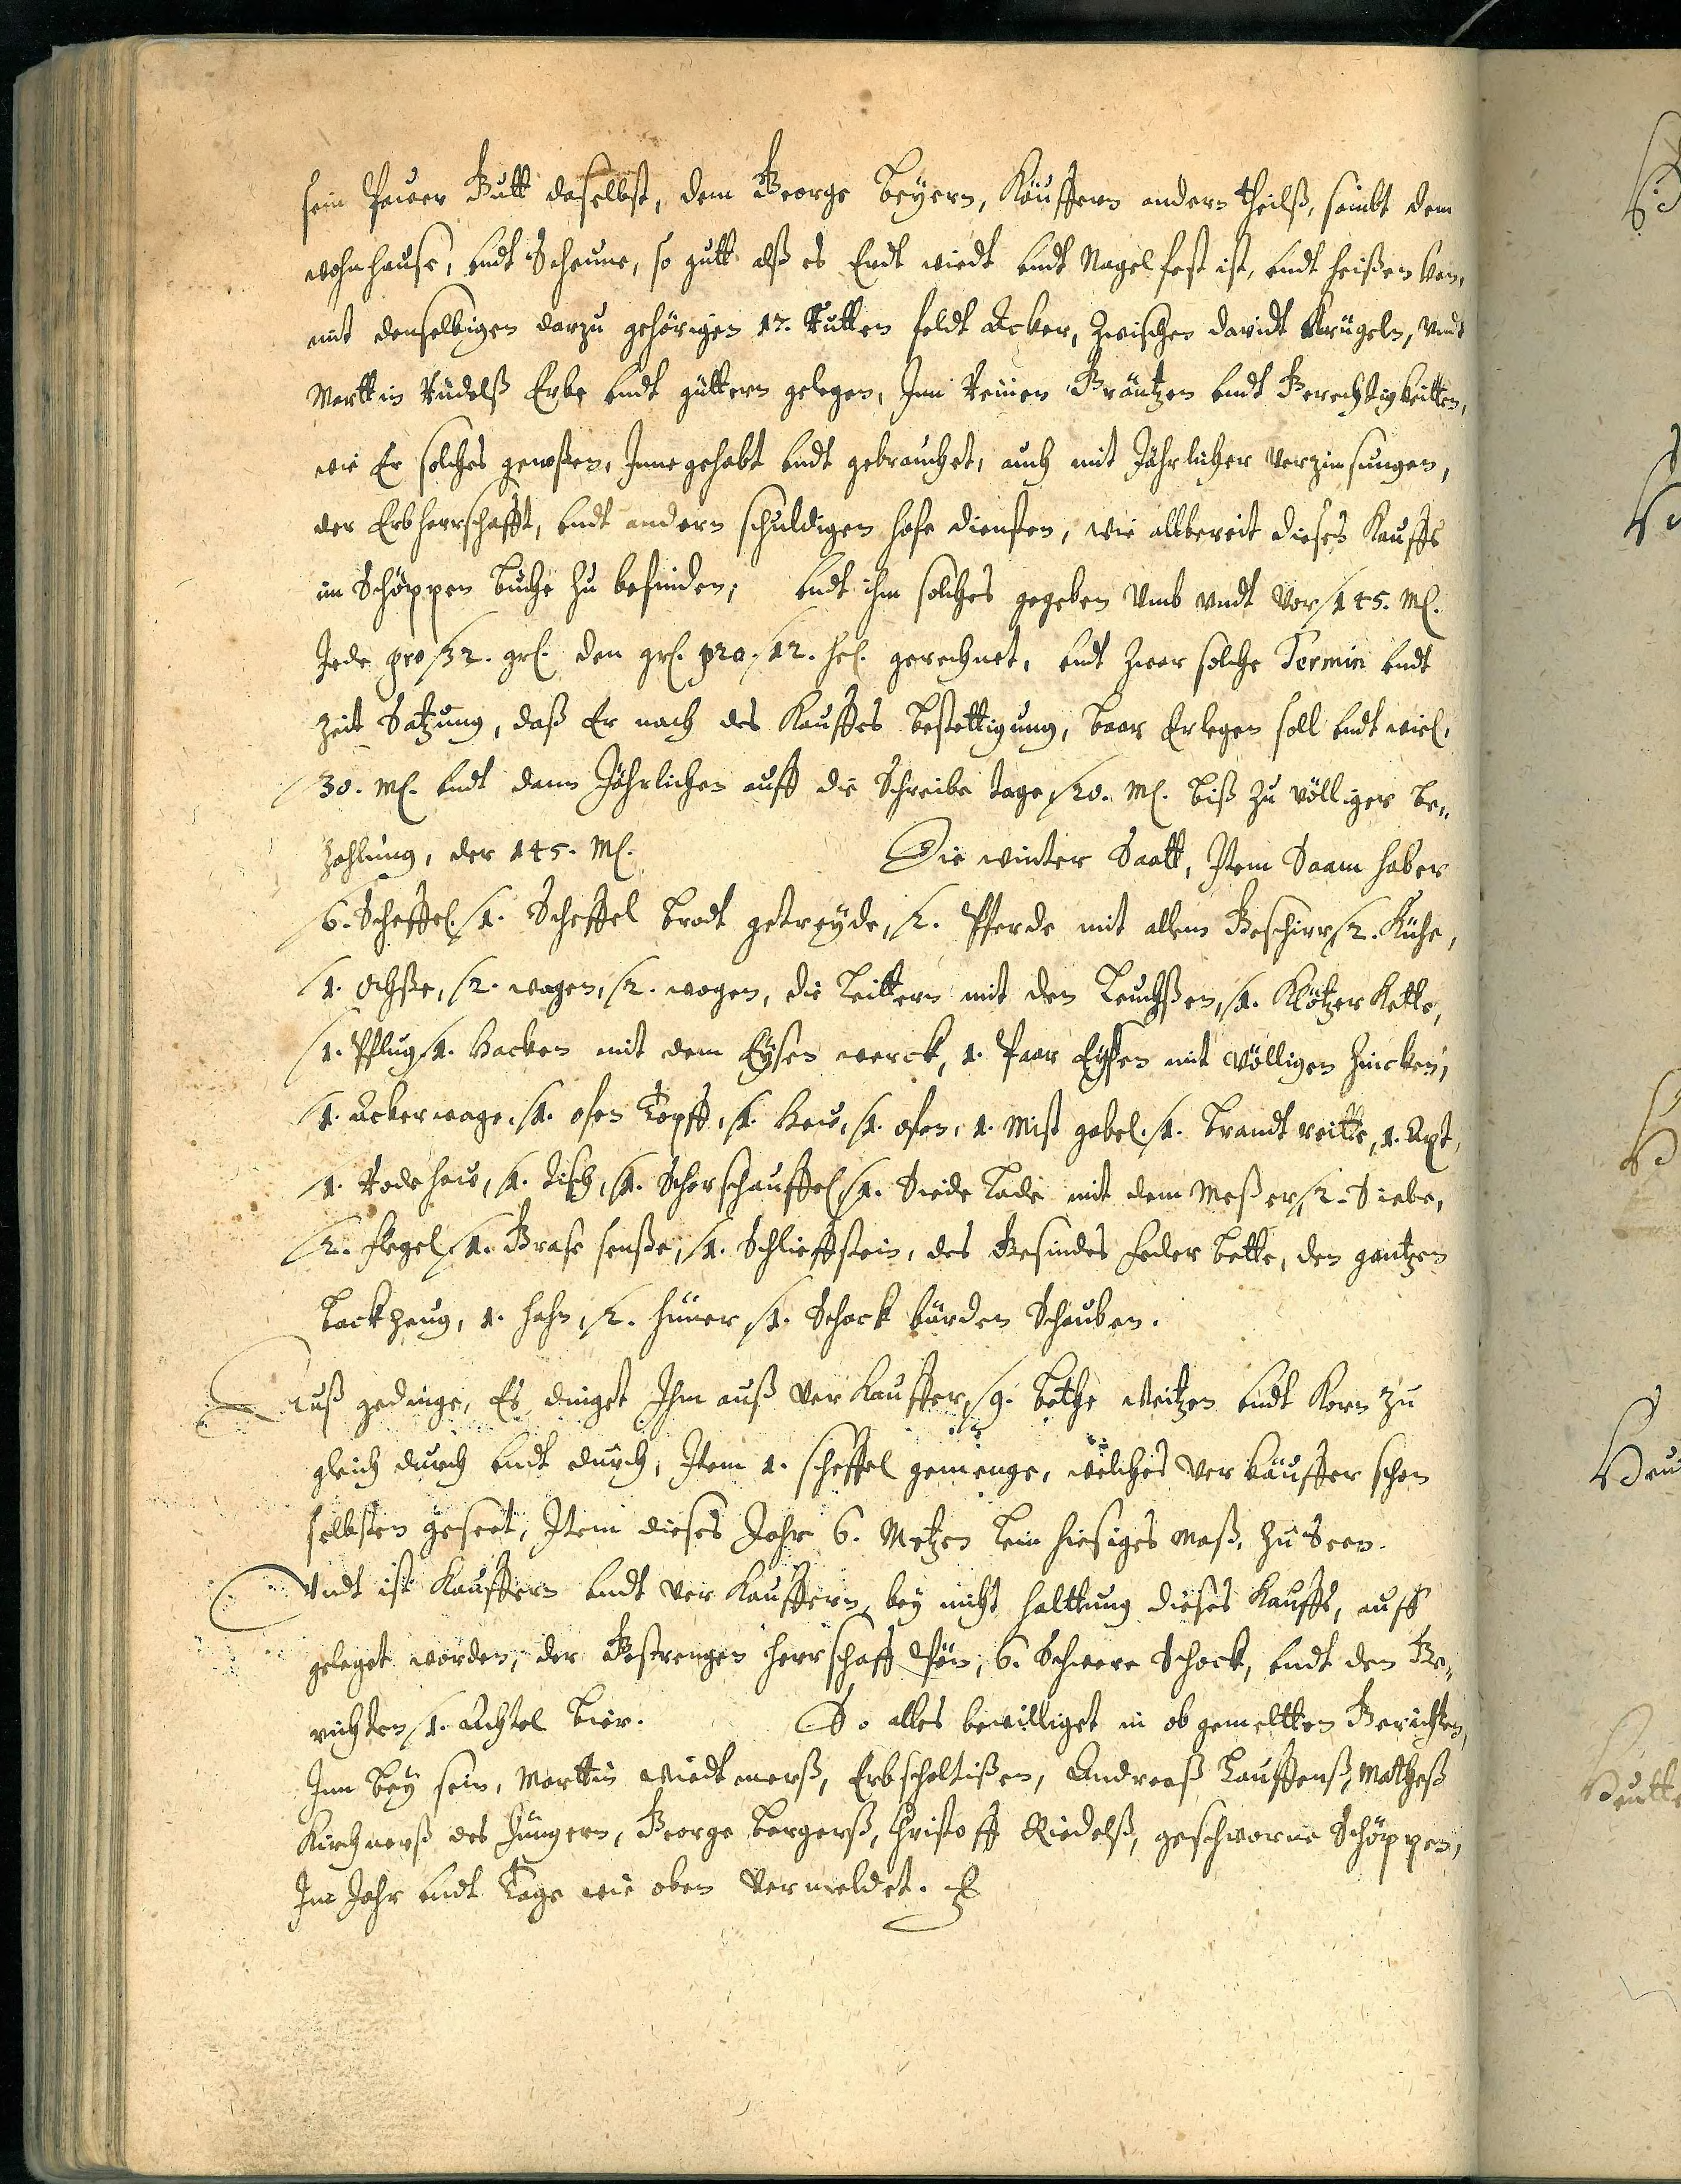 sein Pauer Gutt daselbst, dem George Beyern, Käuffern andern theilß, sambt dem
wohnhause, undt Scheune, so gutt alß es Erdt wiedt undt Nagelfest ist, undt
mit denselbigen darzu gehörigen 12. Rutten feldt Acker, Zwischen Davidt Krügeln, undt
Martin Rüdelß Erbe undt güttern gelegen, Inn Reinen Gräntzen undt Gerechtigkeitten,
wie Er solches genoßen, Inne gehabt undt gebrauchet, auch mit Jährlicher verzinsungen,
der Erbherrschafft, undt andern schuldigen hofe diensten, wie allbereit dieses Kauffs
im Schöppen Buche zu befinden; undt ihm solches gegeben Umb undt vor 145. M.
Jede pro 32. gr. den gr. pro 12. hel. gerechnet, undt zwar solche Termin undt
Zeit Satzung, daß Er nach des Kauffes bestettigung, baar Erlegen soll undt wiel,
30. M. undt dann Jährlichen auff die Schreibe tage 20. M. biß zu völliger be„
zahlung, der 145. M. Die winter Saatt, Item Saam haber
6. Scheffel 1. Scheffel Brodt getreyde, 2. Pferde mit allem Geschirr 2. Kühe,
1. Ochße, 2. wagen, 2. wagen, die Leittern mit den Leuchßen, 1. Klötzer Kette,
1. Pflug 1. Hacken mit dem Eysen werck, 1. Paar Eysen mit völligen Zincken,
1. Ackerwage, 1. ofen Topff, 1. Haw, 1. ofen, 1. Mist gabel 1. Brandt reitte, 1. Axt,
1. Rodehaw, 1. Tisch, 1. Schorschauffel 1. Siede Lade mit dem Meßer, 2. Siebe,
2. flegel 1. Grase senße, 1. Schlieffstein, des Gesindes feder Bette, den gantzen
Backzeug, 1. hahn, 2. hüner 1. Schock bürden Schauben.
Auß gedinge, Es dinget Ihm auß Verkauffer, 9. Bethe Weitzen undt Korn zu
gleich durch undt durch, Item 1. scheffel gemenge, welches Verkäuffer schon
selbsten geseet, Item dieses Jahr 6. Metzen Lein hiesiges maß, zu Seen.
Undt ist Kauffern undt Verkauffern, bey nicht halttung dieses Kauffs, auff
geleget worden, der Gestrengen Herrschafft Pön, 6. Schwere Schock, undt den Ge„
richten 1. Achtel Bier. So alles bewilliget in ob gemeltten Gerichten,
Inn bey sein, Martin Wiedtmerß, Erbscholtißen, Andreaß Lauffenß, Matheß
Kirchnerß des Jüngern, George Bergerß, Christoff Riedelß, geschworne Schöppen,
Im Jahr undt Tage wie oben vermeldet.